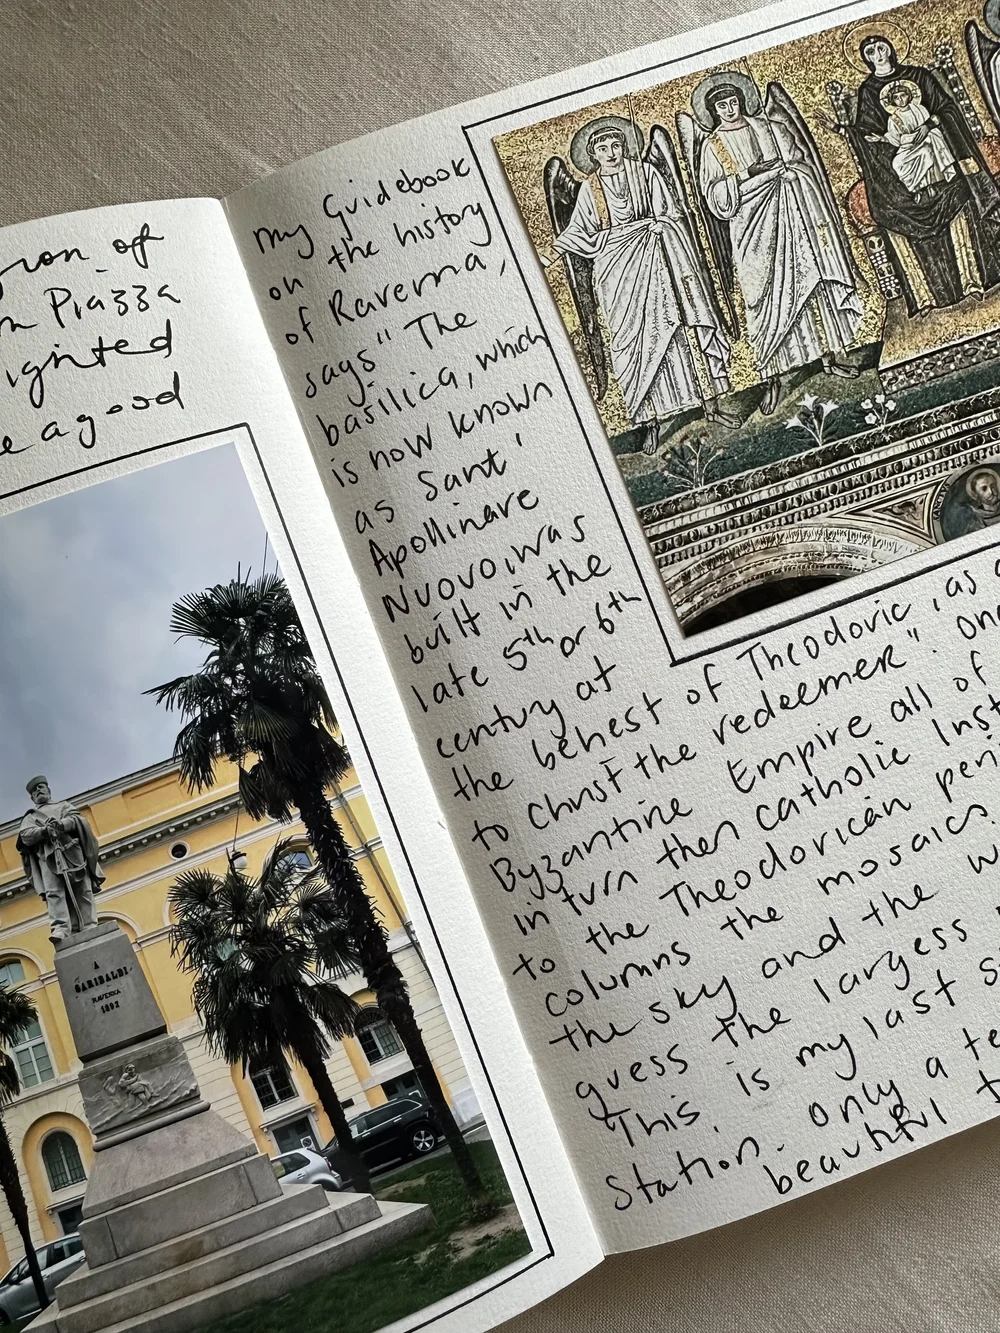 on of
Piazza
ighted
e a good
A
GARIBALDI
RAVENNA
1892
my Guidebook
on the history
of Ravenna,
says "The
basilica, which
is now known
as Sant'
Apollinare
Nuovo, was
built in the
late 5th or 6th
century at
the behest of Theodoric, as a
to Christ the redeemer". On
Byzantine Empire all of
in turn then Catholic Inst
to the Theodorican peri
columns the mosaics.
the sky and the w
guess the largess
This, is my last s
station. only a te
beautiful t